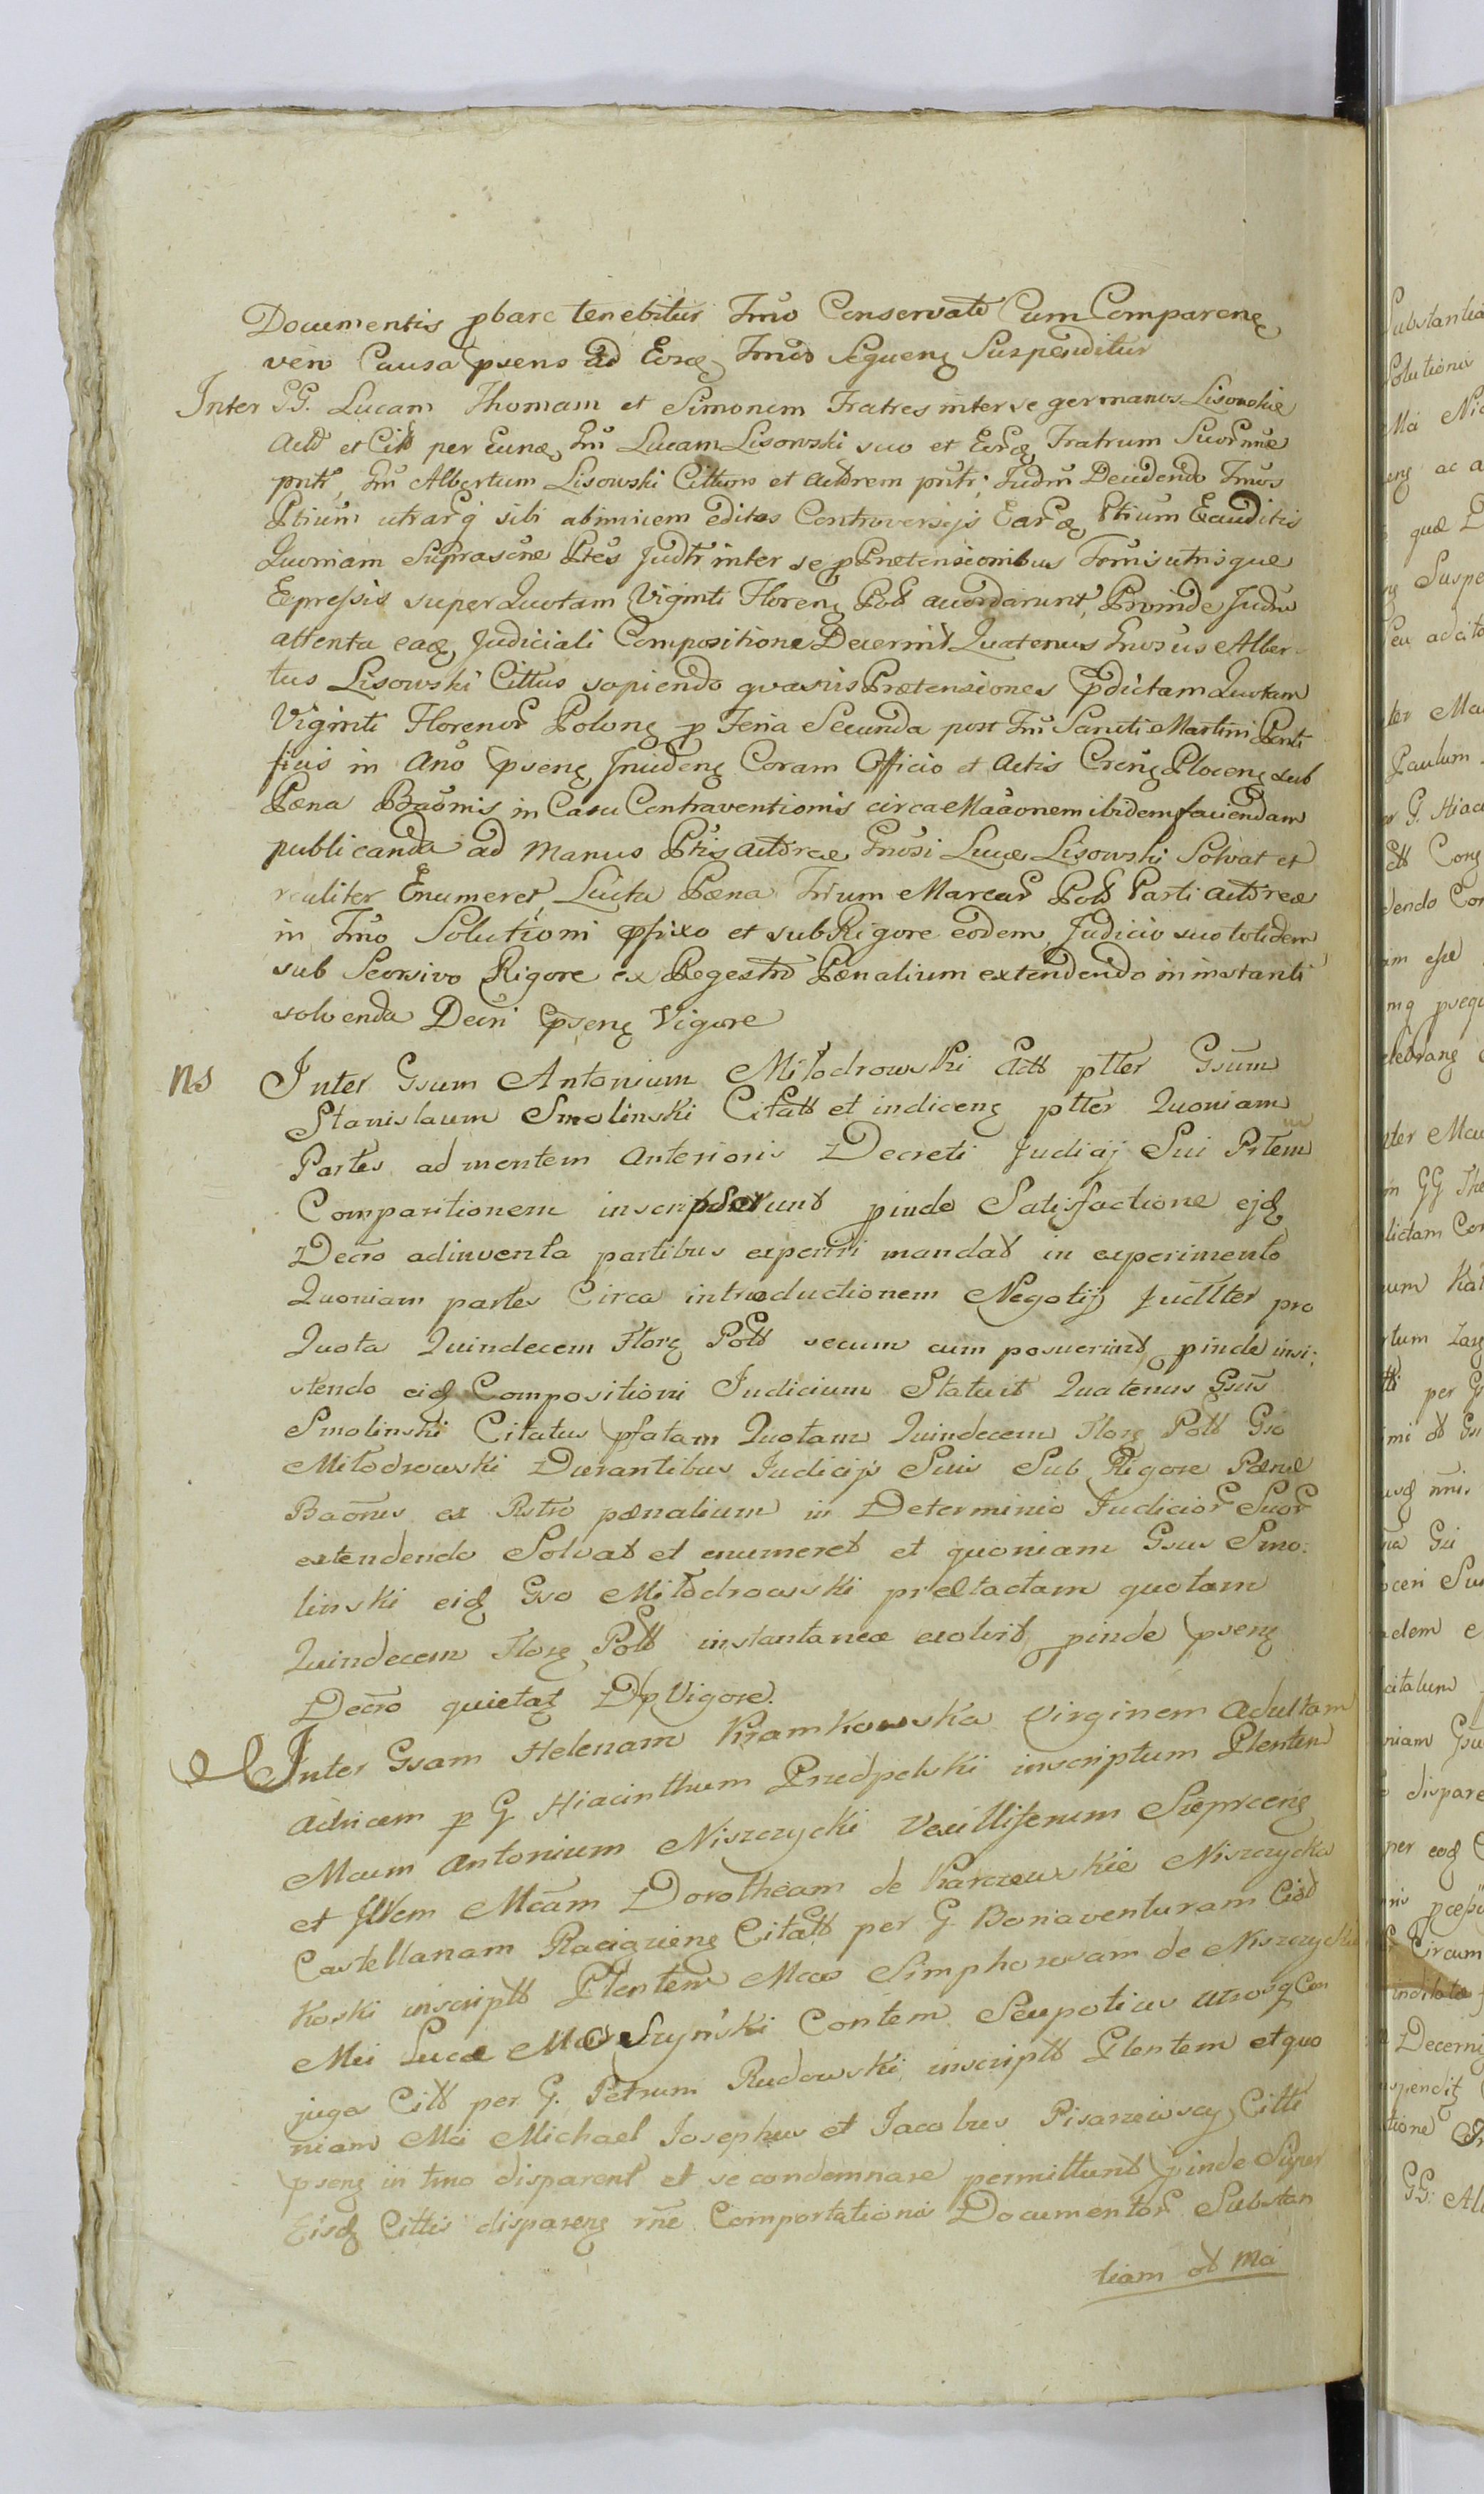 Documentis pbare tenebitur Tmo Conservato Cum Comparenę
vero Causa psens ad Eosd Tmos Sequenę Suspenditur
Inter GG. Lucam Thomam et Simonem Fratres inter se germanos Lisowskie
Act et Citt per Eund Gm Lucam Lisowski suo et Eord Fratrum Suor nne
pntr, Gm Albertum Lisowski Cittum et Actorem pntr; Judm Decidendo Tmos
Ptium utrarq sibi abinvicem editos Controversijs Eard Ptium Exauditis
Quoniam Suprascne Ptes Judtr inter se p Prætensionibus Tornis utrisque
Expressis super Quotam Viginti Florenę Poll accordarunt, Proinde Judm
attenta ead Judiciali Compositione Decernit Quatenus Gnosus Alber-
tus Lisowski Cittus sopiendo quasvis Prætensiones pdictam Quotam
Viginti Florenor Polonę p Feria Secunda post Fm Sancti Martini Ponti
ficis in Ano psenę Incidenę Coram Officio et Actis Crenę Plocenę sub
Pæna Baonis in Casu Contraventionis circa Maaonem ibidem faciendam
publicanda ad Manus Ptis Actoreæ Gnosi Lucæ Lisowski Solvat et
realiter Enumeret Luita Pæna Trium Marcar Poll Parti Actoreæ
in Tmo Solutioni pfixo et sub Rigore eodem Judicio suo totidem
sub Seorsivo Rigore ex Regestro Pænalium extendendo in instanti
solvenda Decri psenę Vigore
ns Inter Gsum Antonium Miłodrowski Act ptter Gsum
Stanislaum Smolinski Citatt et indicenę ptter Quoniam
Partes ad mentem Anterioris Decreti Judicij Sui Prtem
Comparitionem inscripserunt pinde Satisfactione ejd
Decro adinventa partibus experiri mandat in experimento
Quoniam partes Circa introductionem Negotij Judtter pro
Quota Quindecem Florę Poll secum cum posuerint pinde insi:
stendo eid Compositioni Judicium Statuit Quatenus Gsus
Smolinski Citatus pfatam Quotam Quindecem Florę Poll Gso
Miłodrowski Durantibus Judicijs Suis Sub Rigore Pænæ
Baonis ex Rstro pænalium in Determinio Judicior Suor
extendendo Solvat et enumeret et quoniam Gsus Smo:
linski eid Gso Miłodrowski prætactam quotam
Quindecem Florę Poll instantanea exolvit pinde psenę
Decro quietatę Dp Vigore.
Inter Gsam Helenam Kramkowska Virginem Adultam
Actricem p G Hiacinthum Przedpełski inscriptum Plenten
Mcum Antonium Niszczycki Vexilliferum Sieprcenę
et Illem Mcam Dorotheam de Karczewskie Niszczycka
Castellanam Raciązienę Citatt per G Bonaventuram Ciot
Koski inscriptt Plentem Mcos Simphorosam de Niszczyckie
Mci Lucæ Morszyński Contem Scupoticus uxosq Con
juges Citt per G. Petrum Rudowski inscriptt Plentem et quo
niam Mci Michael Josephus et Jacobus Pisarzewscy Citti
psenę in tmo disparent et se condemnare permittunt pinde Super
Eisd Cittis disparenę rne Comportationis Documentor Substan
tiam et Mci